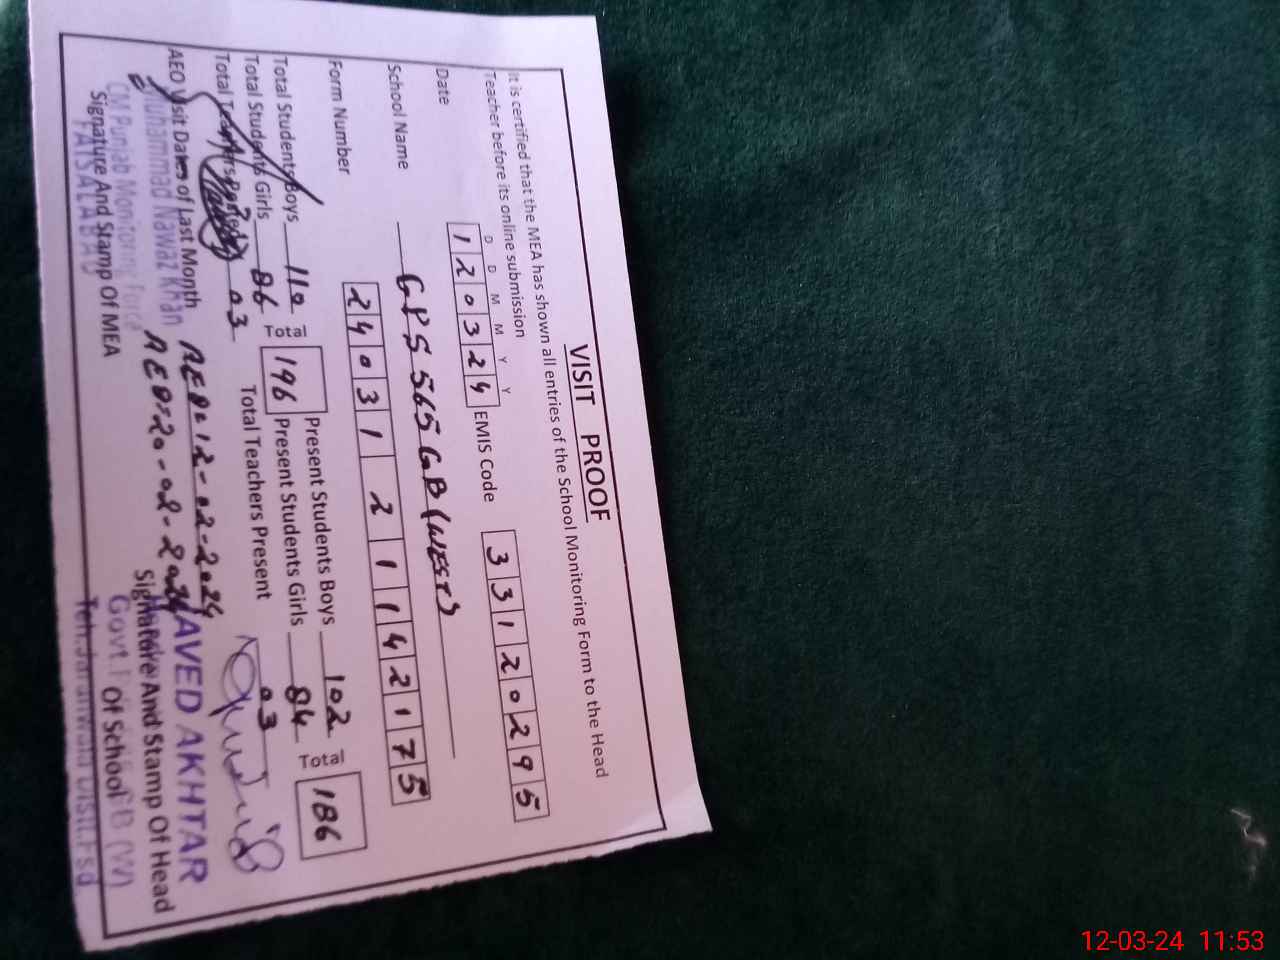 VISIT PROOF
It is certified that the MEA has shown all entries of the School Monitoring Form to the Head
Teacher before its online submission
D D M M Y Y
Date 1 2 0 3 2 4 EMIS Code 3 3 1 2 0 2 9 5
School Name GPS 565 GB (WEST)
Form Number 2 4 0 3 1 2 1 1 4 2 1 7 5
Total Students Boys 110 Total 196 Present Students Boys 102 Total 186
Total Students Girls 86 Present Students Girls 84
Total Teachers 03 Total Teachers Present 03
AEO Visit Dates of Last Month AEO= 12-02-2024
AEO=20-02-2024
Muhammad Nawaz Khan
CM Punjab Monitoring Force
FAISALABAD
Signature And Stamp Of MEA
JAVED AKHTAR
Signature And Stamp Of Head
Of School
Govt. GB (W)
Teh: Jaranwala Distt. Fsd
12-03-24 11:53